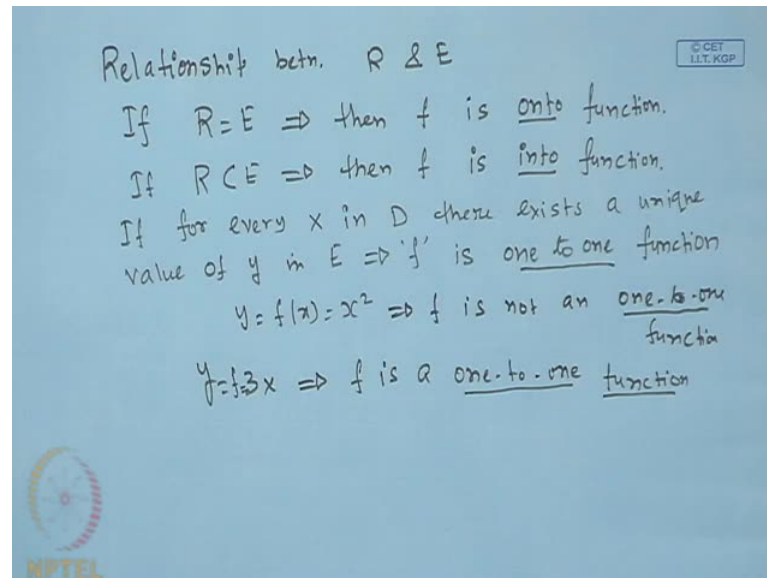 Relationship betn. R & E
© CET
I.I.T. KGP
If R = E ⇒ then f is onto function.
If R ⊂ E ⇒ then f is into function.
If for every x in D there exists a unique
value of y in E ⇒ 'f' is one to one function
y = f(x) = x² ⇒ f is not an one-to-one
function
y=f=3x ⇒ f is a one-to-one function
NPTEL